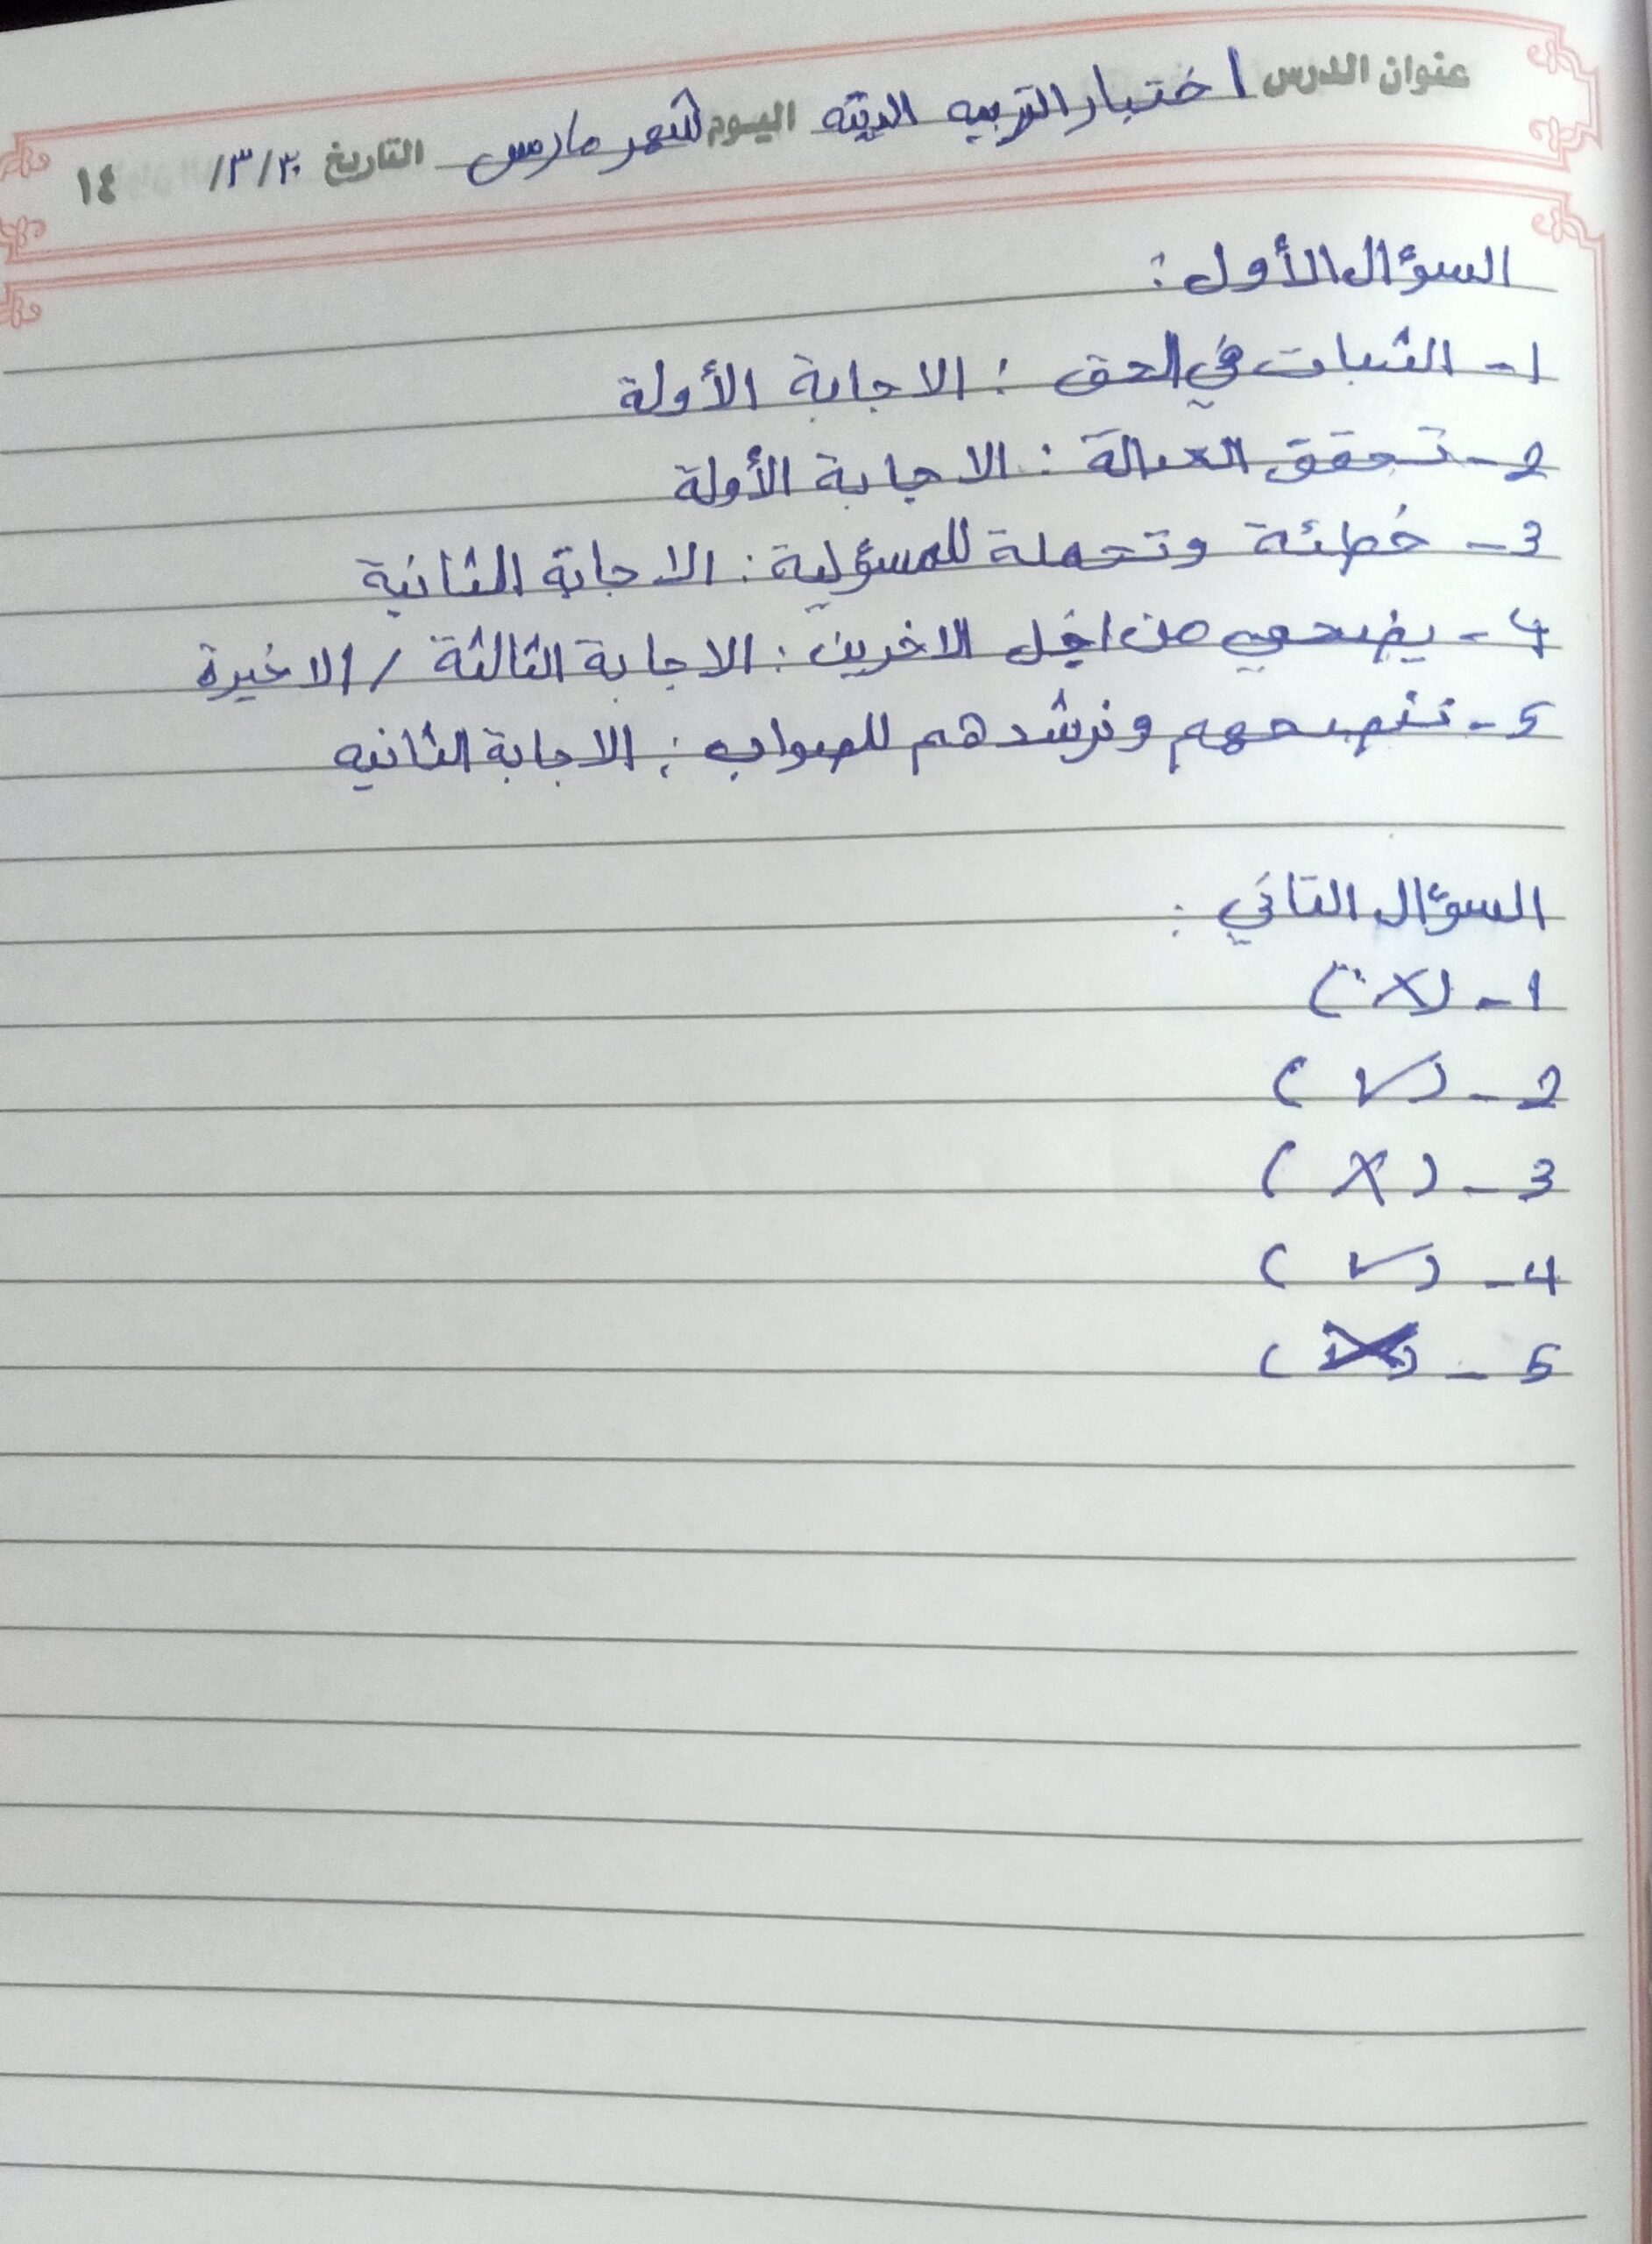 عنوان الدرس اختبار التربيه الدينه اليوم شهر مارس التاريخ ٣٠/٣/ ١٤
السؤال الأول :
1- الثبات في الحق : الاجابة الأولة
2- تحقق العدالة : الاجابة الأولة
3- خطئة وتحملة للمسؤلية : الاجابة الثانية
4- يضحي من اجل الاخرين : الاجابة الثالثة / الاخيرة
5- ننصحهم ونرشدهم للصواب : الاجابة الثانيه
السؤال الثاني :
1- (X)
2- (✓)
3- (X)
4- (✓)
5- (X)